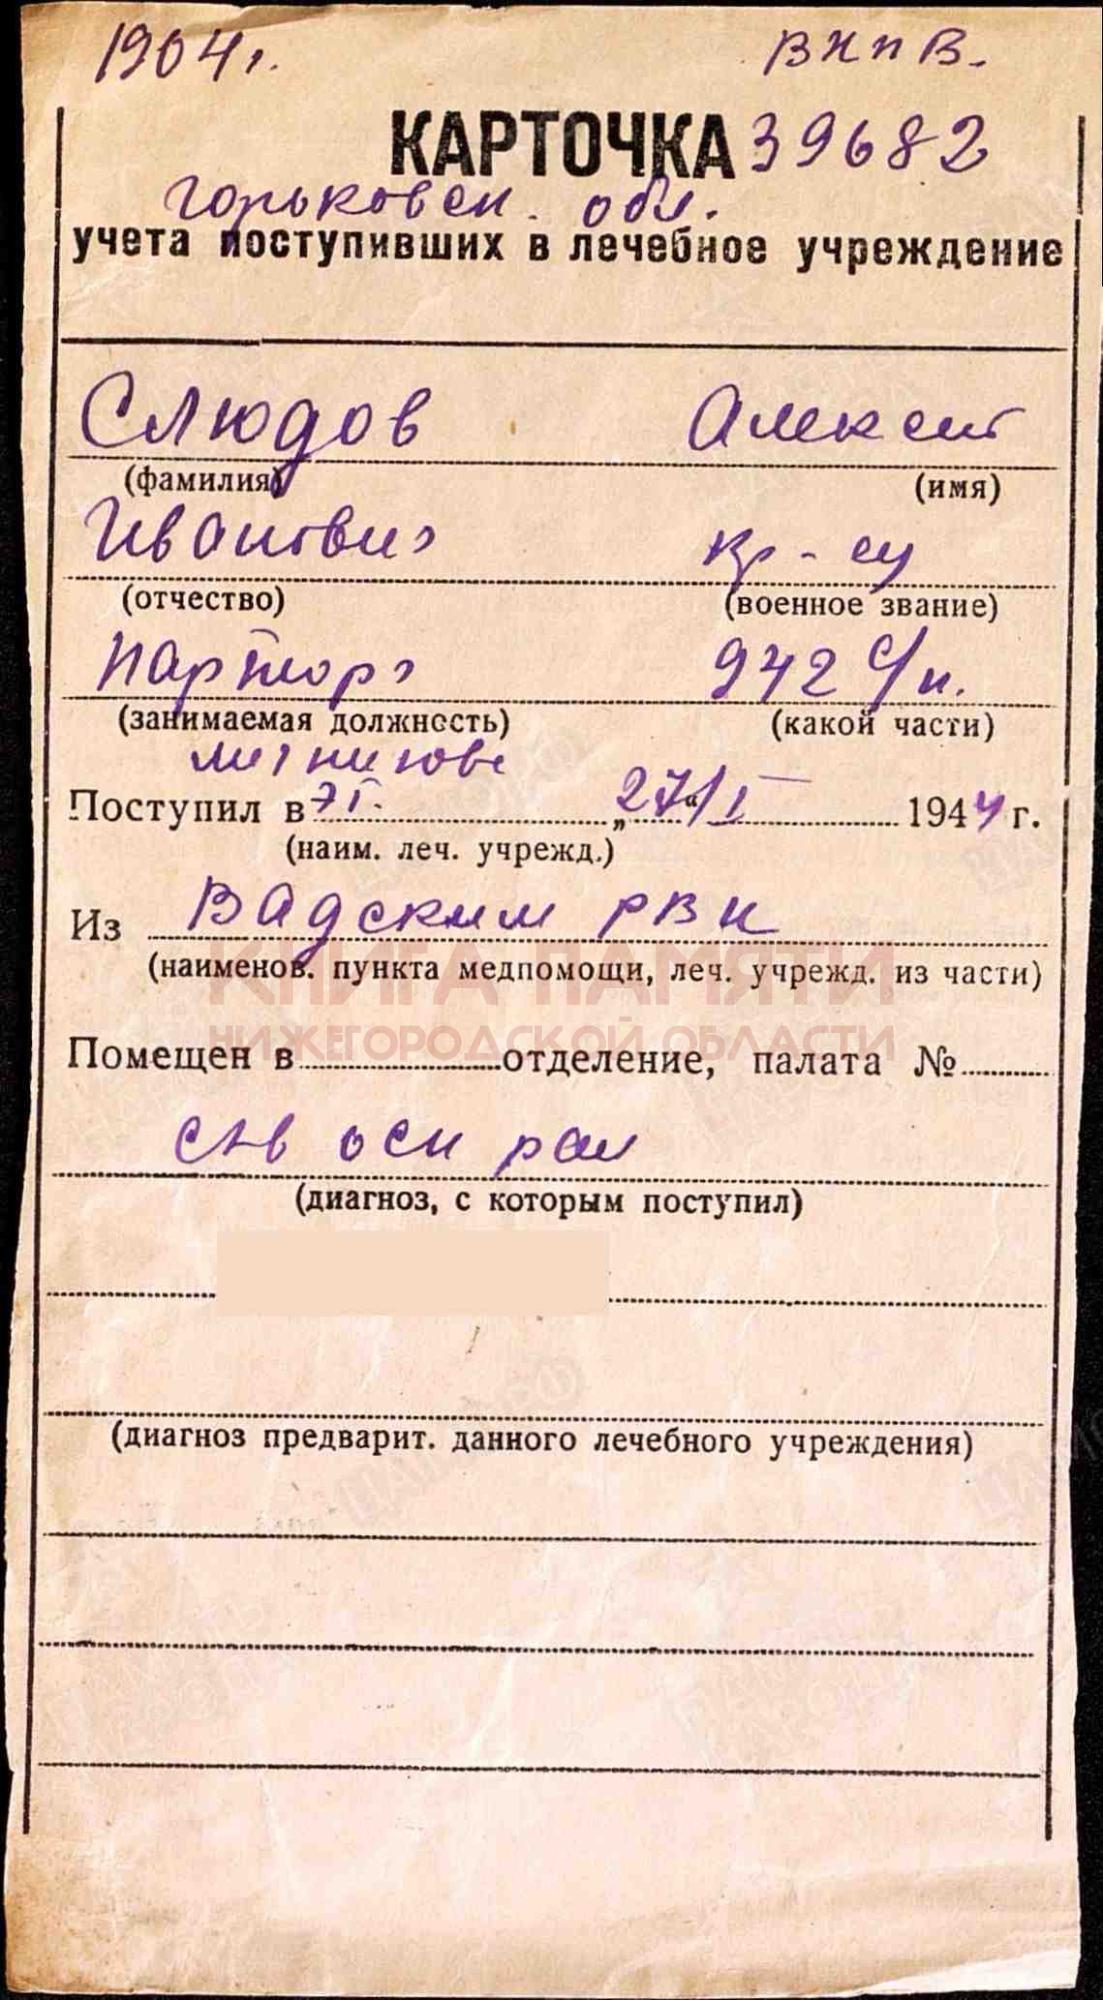 1904 г. ВКПВ.
КАРТОЧКА 39682
Горьковск. обл.
учета поступивших в лечебное учреждение
Слюдов Алексей
(фамилия) (имя)
Иванович кр-ец
(отчество) (военное звание)
парторг 942 с/п.
(занимаемая должность) (какой части)
Поступил в „27/I 1944 г.
(наим. леч. учрежд.)
Из Вадским РВК
(наименов. пункта медпомощи, леч. учрежд. из части)
КНИГА ПАМЯТИ
НИЖЕГОРОДСКОЙ ОБЛАСТИ
Помещен в отделение, палата №
слеп оск ран
(диагноз, с которым поступил)
(диагноз предварит. данного лечебного учреждения)